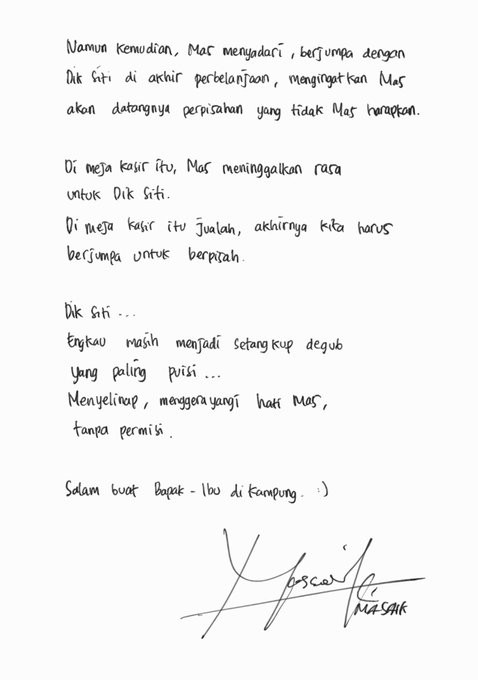 Namun kemudian, Mas menyadari, berjumpa dengan
Dik Siti di akhir perbelanjaan, mengingatkan Mas
akan datangnya perpisahan yang tidak Mas harapkan.
Di meja kasir itu, Mas meninggalkan rasa
untuk Dik Siti.
Di meja kasir itu jualah, akhirnya kita harus
berjumpa untuk berpisah.
Dik Siti ...
Engkau masih menjadi setangkup degub
yang paling puisi ...
Menyelinap, menggerayangi hati Mas,
tanpa permisi.
Salam buat Bapak - Ibu di kampung. :)
MASAIK